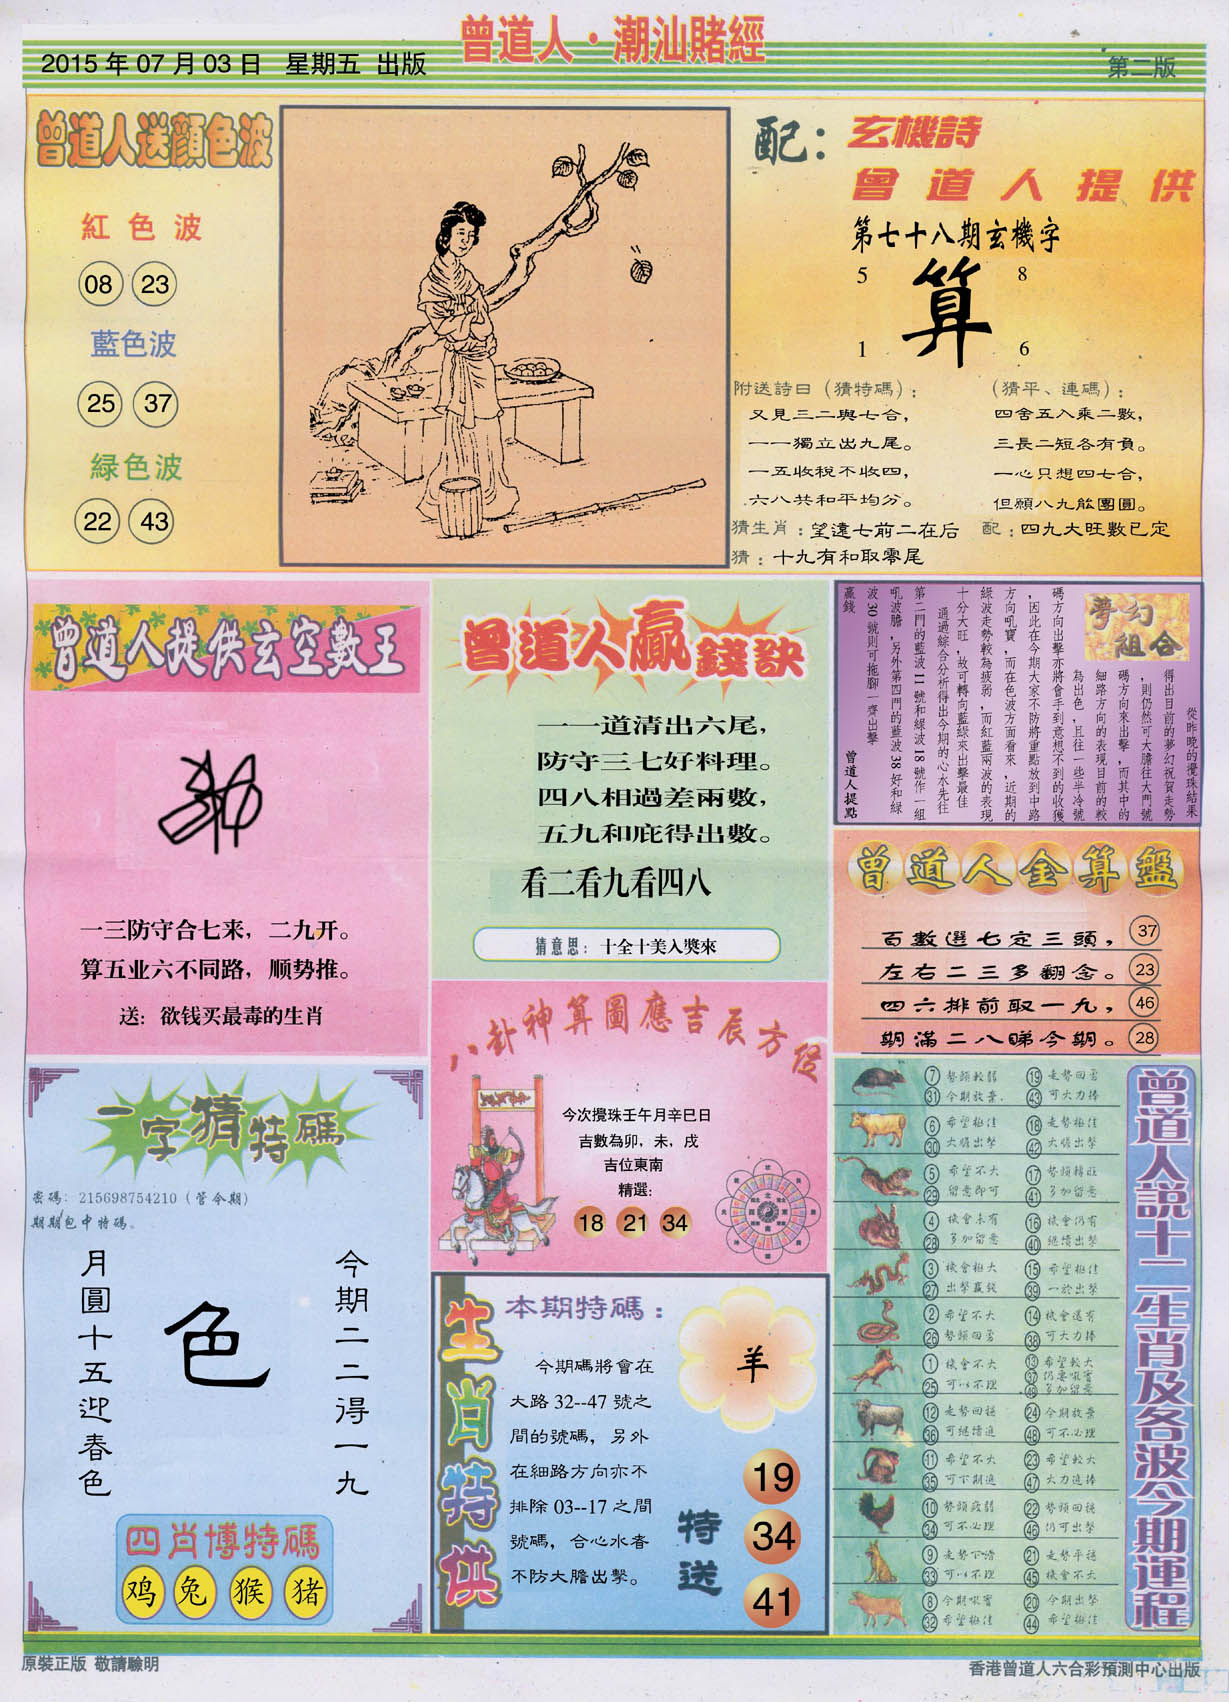 曾道人·潮汕賭經
2015年07月03日 星期五 出版
第二版
曾道人送顏色波
紅色波
08 23
藍色波
25 37
緑色波
22 43
配：玄機詩
曾道人提供
第七十八期玄機字
5 8
算
1 6
附送詩曰（猜特碼）：
又見三二與七合，
一一獨立出九尾。
一五收稅不收四，
六八共和平均分。
（猜平、連碼）：
四舍五入乘二數，
三長二短各有負。
一心只想四七合，
但願八九能團圓。
猜生肖：望遠七前二在后
配：四九大旺數已定
猜：十九有和取零尾
曾道人提供玄空數王
一三防守合七来，二九开。
算五业六不同路，顺势推。
送：欲钱买最毒的生肖
曾道人贏錢訣
一一道清出六尾，
防守三七好料理。
四八相過差兩數，
五九和庇得出數。
看二看九看四八
猜意思：十全十美入獎來
夢幻組合
從昨晚的攪珠結果
得出目前的夢幻祝賀走勢
，則仍然可大膽往大門號
碼方向來出擊，而其中的
細路方向的表現目前的較
為出色，且往一些半冷號
碼方向出擊亦將會手到意想不到的收獲
，因此在今期大家不防將重點放到中路
方向吼寶，而在色波方面看來，近期的
綠波走勢較為疲弱，而紅藍兩波的表現
十分大旺，故可轉向藍綠來出擊最佳
通過綜合分析得出今期的心水先往
第二門的藍波11號和綠波18號作一組
吼波膽，另外第四門的藍波38好和綠
波30號則可拖腳一齊出擊
贏錢
曾道人提點
曾道人金算盤
百數選七定三頭， 37
左右二三多翻念。 23
四六排前取一九， 46
期滿二八睇今期。 28
一字猜特碼
密碼：215698754210（管今期）
期期包中特碼。
今期二二得一九
色
月圓十五迎春色
四肖博特碼
鸡 兔 猴 猪
八卦神算圖應吉辰方位
今次攪珠壬午月辛巳日
吉數為卯，未，戌
吉位東南
精選：
18 21 34
生肖特供
本期特碼：
今期碼將會在
大路32--47號之
間的號碼，另外
在細路方向亦不
排除03--17之間
號碼，合心水者
不防大膽出擊。
羊
特送
19
34
41
曾道人說十二生肖及各波今期運程
7 勢頭較弱 19 走勢回勇
31 今期放棄 43 可大力捧
6 希望極佳 18 走勢極佳
30 大膽出擊 42 大膽出擊
5 希望不大 17 勢頭轉旺
29 留意即可 41 多加留意
4 機會未有 16 機會仍有
28 多加留意 40 繼續出擊
3 機會極大 15 希望極佳
27 出擊贏錢 39 一於出擊
2 希望不大 14 機會還有
26 勢頭回勇 38 可大力捧
1 機會不大 13 希望較大
25 可以不理 37 仍要吼實
49 多加留意
12 走勢回穩 24 今期放棄
36 可繼續追 48 可不必理
11 希望不大 23 希望較大
35 可下期追 47 大力追捧
10 勢頭疲弱 22 勢頭回穩
34 可不必理 46 仍可出擊
9 走勢下滑 21 走勢平穩
33 可以不理 45 機會不大
8 今期吼實 20 今期出擊
32 希望極佳 44 希望極佳
原裝正版 敬請驗明
香港曾道人六合彩預測中心出版